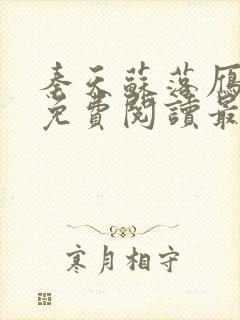 奉天蘇落雁
免費閱讀最
寒月相守